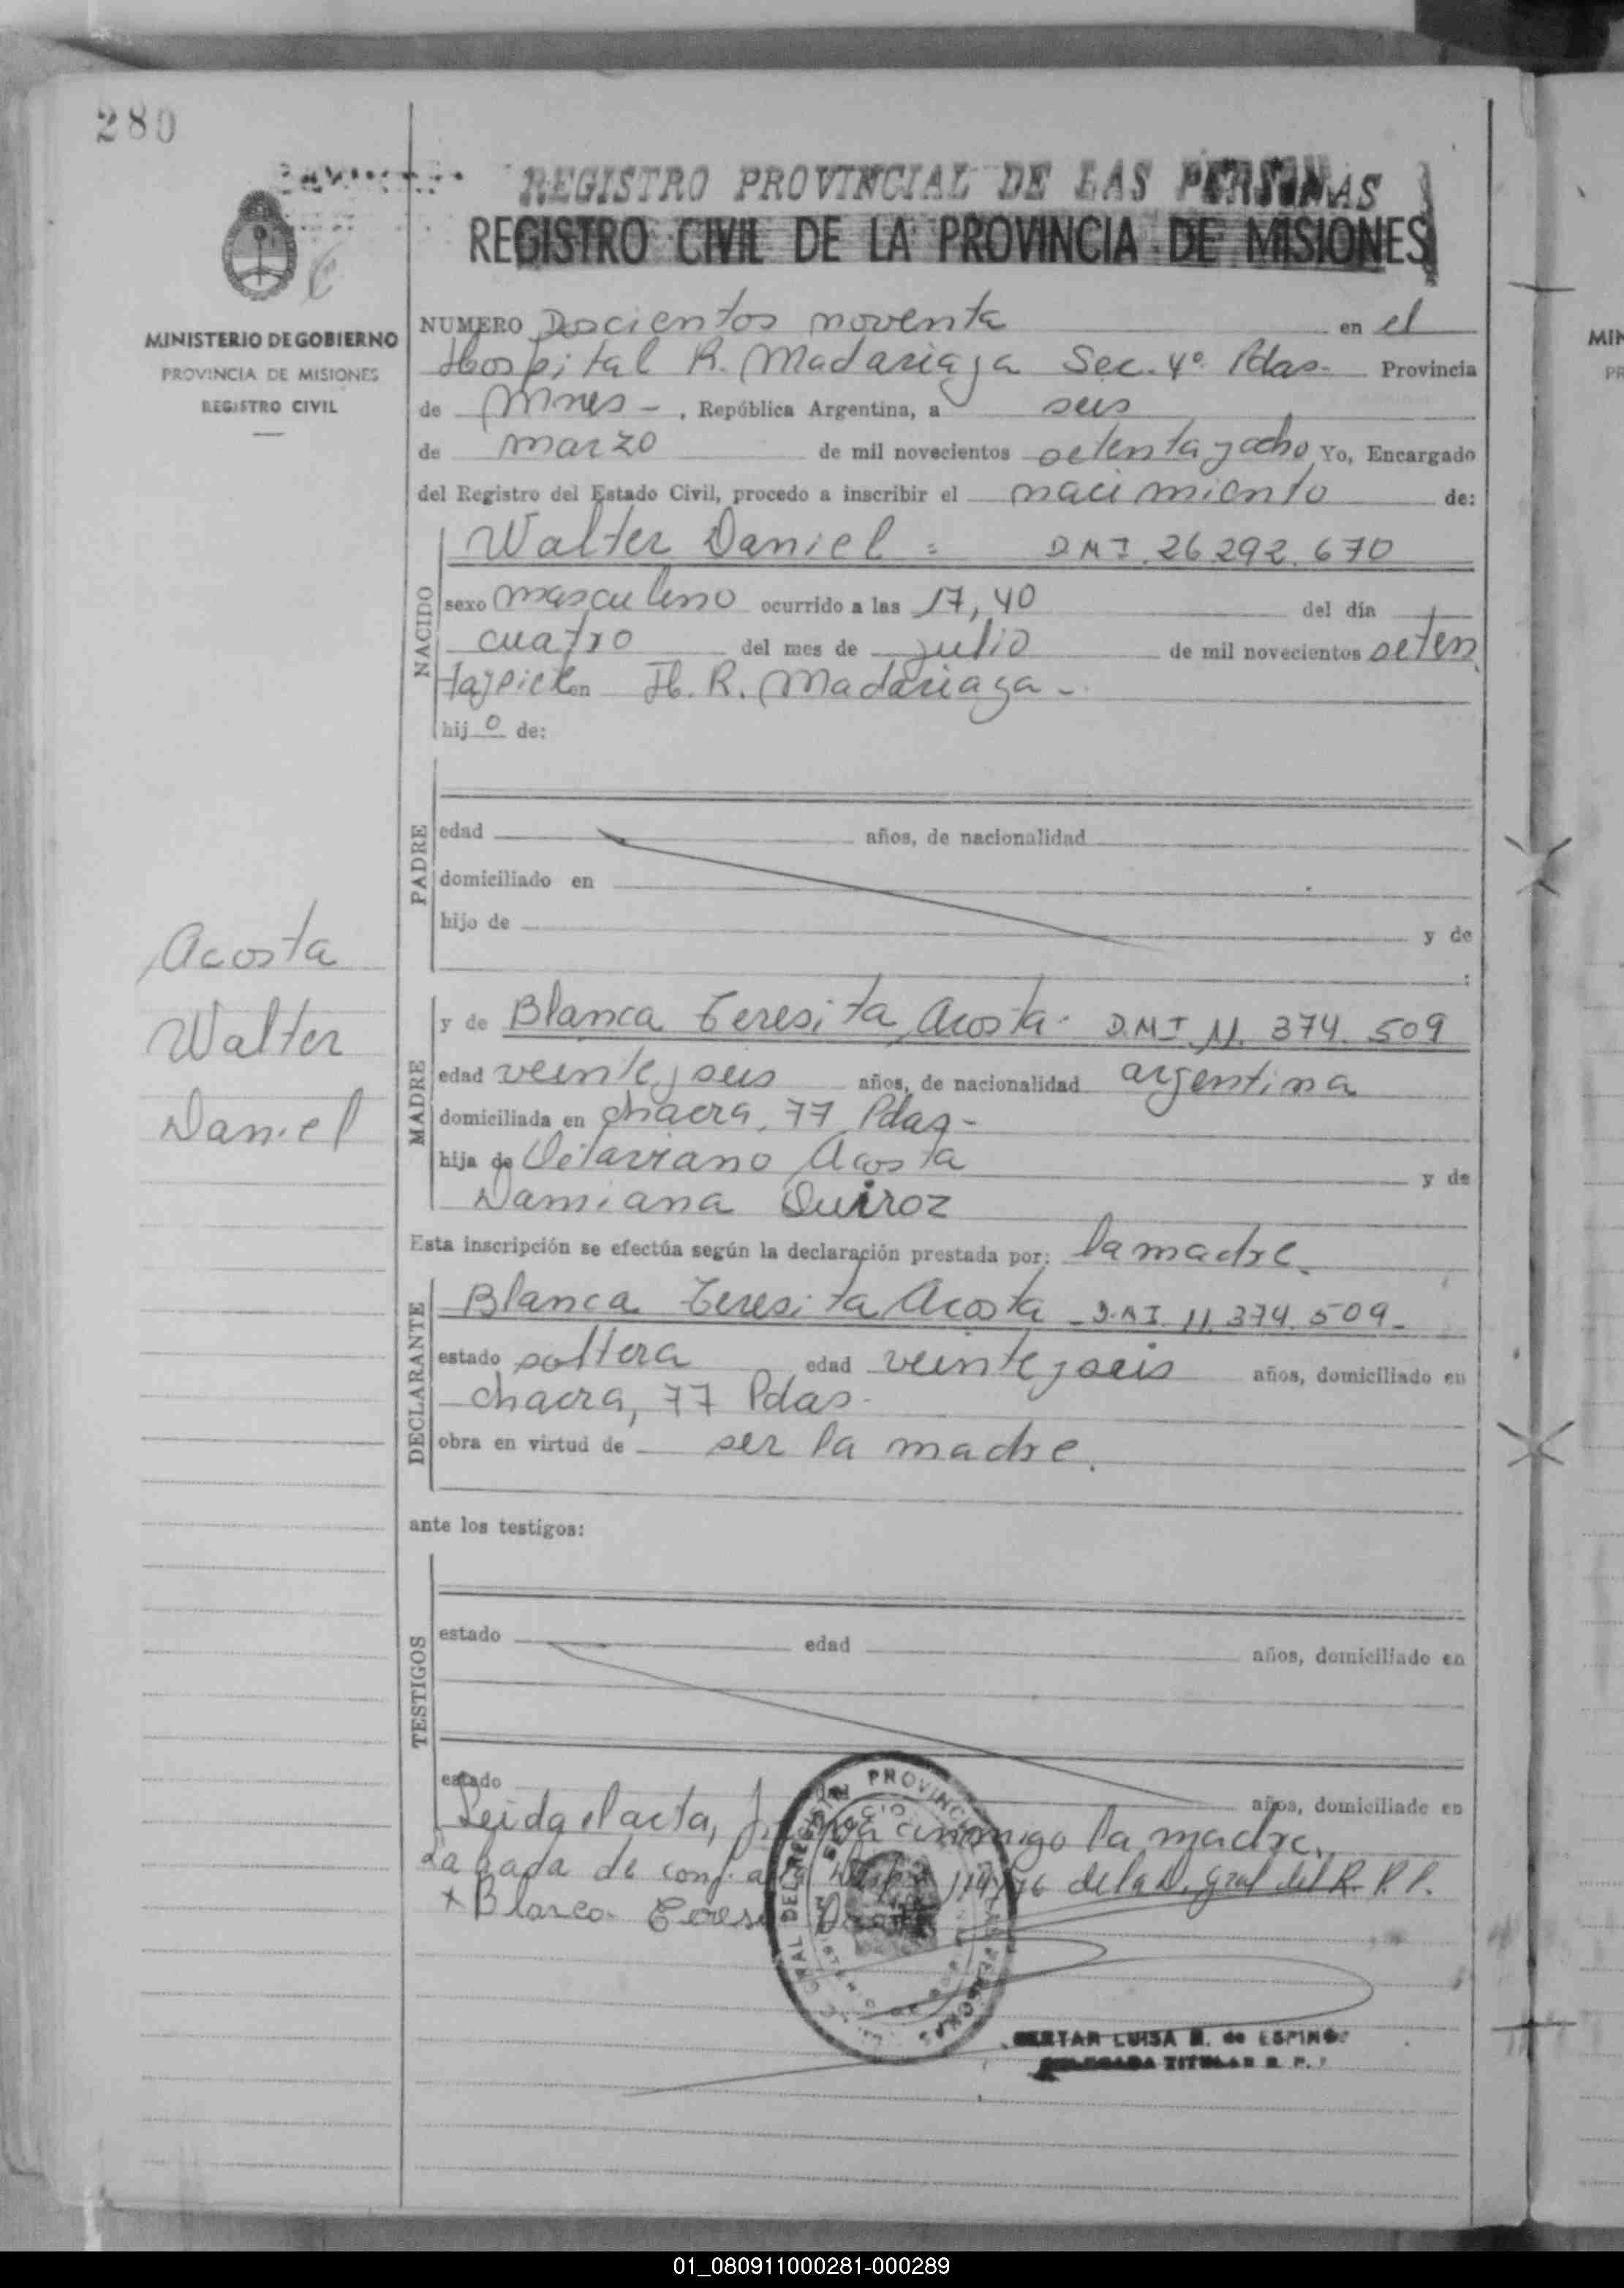 280
REGISTRO PROVINCIAL DE LAS PERSONAS
REGISTRO CIVIL DE LA PROVINCIA DE MISIONES
MINISTERIO DE GOBIERNO
PROVINCIA DE MISIONES
REGISTRO CIVIL
NUMERO Doscientos noventa en el
Hospital R. Madariaga Sec. 4º Pdas. Provincia
de Mnes - , República Argentina, a seis
de marzo de mil novecientos setenta y ocho Yo, Encargado
del Registro del Estado Civil, procedo a inscribir el nacimiento de:
NACIDO
Walter Daniel = D.N.I. 26.292.670
sexo masculino ocurrido a las 17,40 del día
cuatro del mes de julio de mil novecientos seten
en H. R. Madariaga -
hij o de:
PADRE
edad años, de nacionalidad
domiciliado en
hijo de y de
Acosta
Walter
Daniel
MADRE
y de Blanca Teresita Acosta - D.N.I. 11.374.509
edad veinte y seis años, de nacionalidad argentina
domiciliada en chacra, 77 Pdas -
hija de Acosta y de
Damiana Quiroz
Esta inscripción se efectúa según la declaración prestada por: la madre.
DECLARANTE
Blanca Teresita Acosta - D.N.I. 11.374.509 -
estado soltera edad veinte y seis años, domiciliado en
chacra, 77 Pdas -
obra en virtud de ser la madre.
ante los testigos:
TESTIGOS
estado edad años, domiciliado en
estado años, domiciliado en
Leida el acta, la madre.
de la D. Gral del R. P. P.
x Blanca
LUISA de
TITULAR R. P.
MIN
PR
01_080911000281-000289